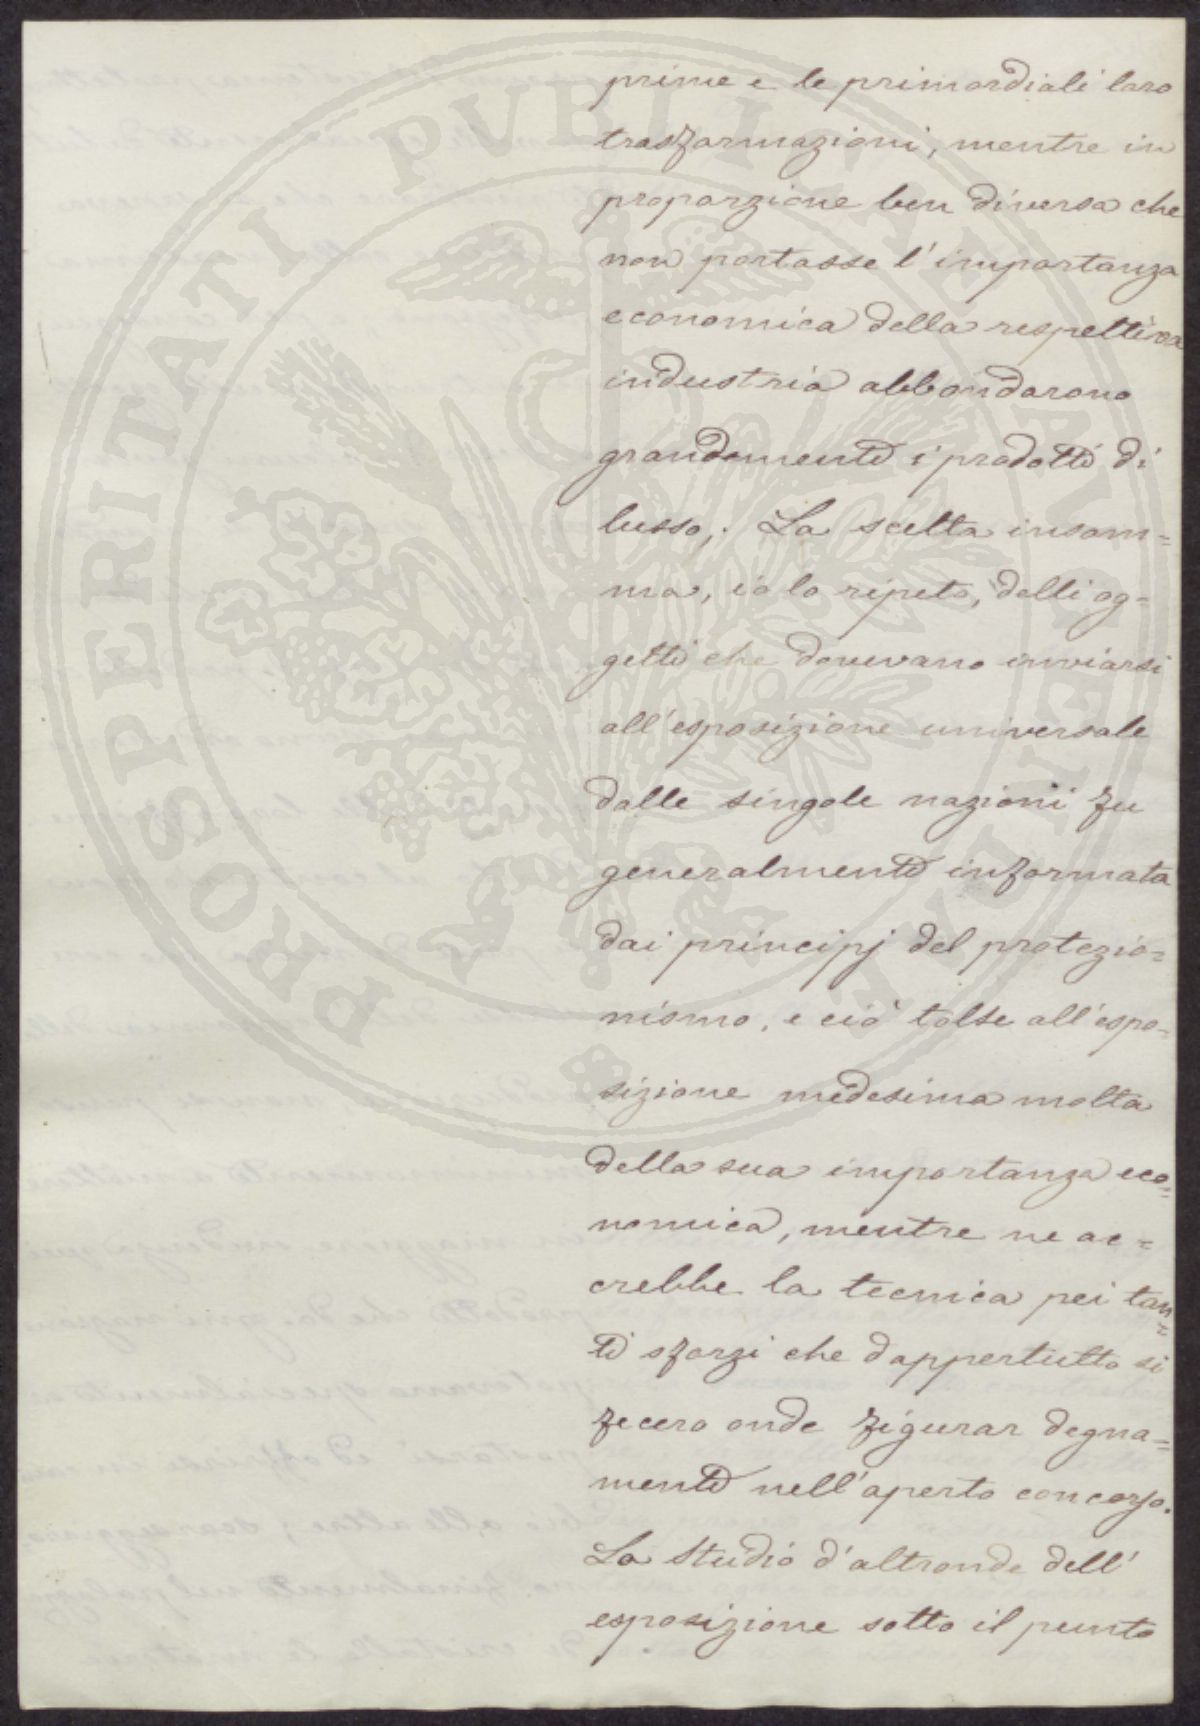 prime e le primordiali loro
trasformazioni, mentre in
proporzione ben diversa che
non portasse l'importanza
economica della respettiva
industria abbondarono
grandemente i prodotti di
lusso,. La scelta insom=
ma, io lo ripeto, delli og=
getti che dovevano inviarsi
all'esposizione universale
dalle singole nazioni fu
generalmente informata
dai principj del protezio=
nismo, e ciò tolse all'espo=
sizione medesima molta
della sua importanza eco=
nomica, mentre ne ac=
crebbe la tecnica pei tan=
ti sforzi che dappertutto si
fecero onde figurar degna=
mente nell'aperto concorso.
Lo studio d'altronde dell'
esposizione sotto il punto
PROSPERITATI PUBLICAE AUGENDAE